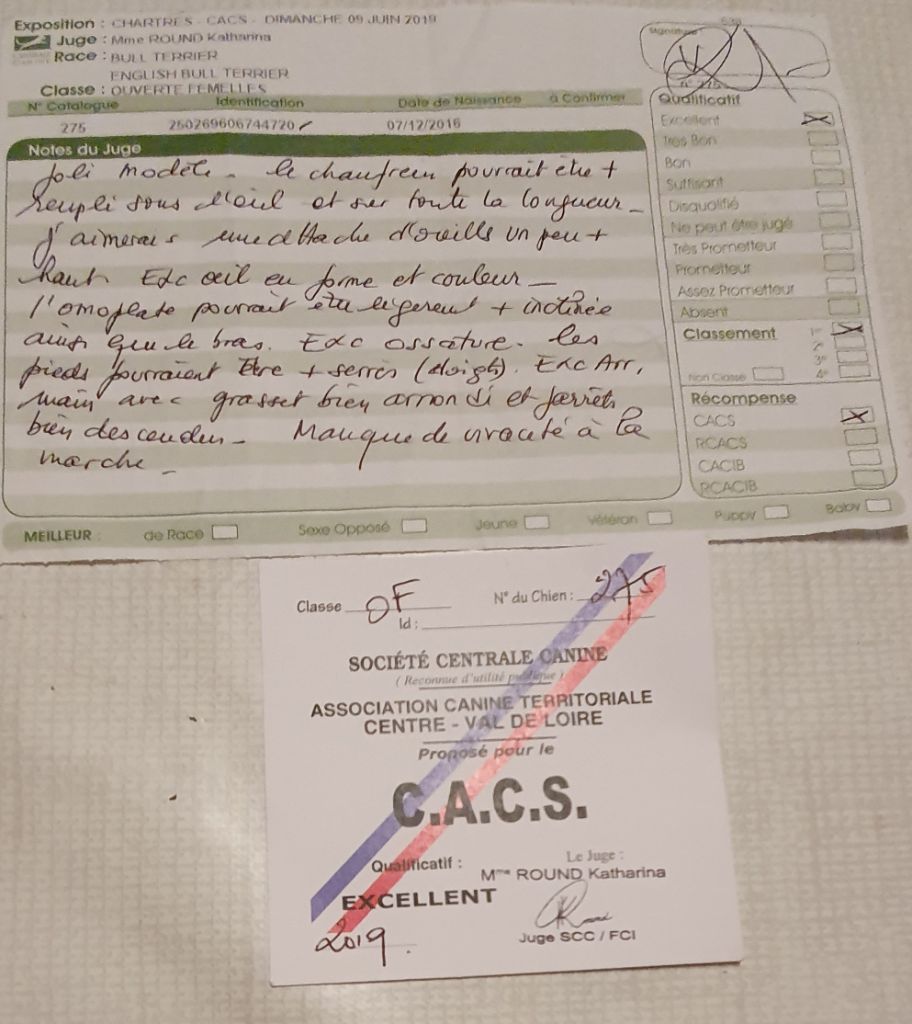 Exposition : CHARTRES - CACS - DIMANCHE 09 JUIN 2019
Juge : Mme ROUND Katharina
Race : BULL TERRIER
ENGLISH BULL TERRIER
Classe : OUVERTE FEMELLES
N° Catalogue Identification Date de Naissance à Confirmer
275 250269606744720 07/12/2016
Signature
Notes du Juge
Joli modèle - le chanfrein pourrait être +
rempli sous l'oeil et sur toute la longueur -
J'aimerais une attache d'oreills un peu +
haut. Exc œil en forme et couleur -
l'omoplate pourrait être légerent + inclinée
ainsi que le bras. Exc ossature. les
pieds pourraient être + serrés (doigts). Exc Arr.
main avec grasset bien arrondi et jarrets
bien descendus - Manque de vivacité à la
marche -
Qualificatif
Excellent
Très Bon
Bon
Suffisant
Disqualifié
Ne peut être jugé
Très Prometteur
Prometteur
Assez Prometteur
Absent
Classement 1er
2e
3e
Non Classé 4e
Récompense
CACS
RCACS
CACIB
RCACIB
MEILLEUR : de Race Sexe Opposé Jeune Vétéran Puppy Baby
Classe OF N° du Chien : 275
Id :
SOCIÉTÉ CENTRALE CANINE
( Reconnue d'utilité publique )
ASSOCIATION CANINE TERRITORIALE
CENTRE - VAL DE LOIRE
Proposé pour le
C.A.C.S.
Qualificatif : Le Juge :
Mme ROUND Katharina
EXCELLENT
2019.
Juge SCC / FCI